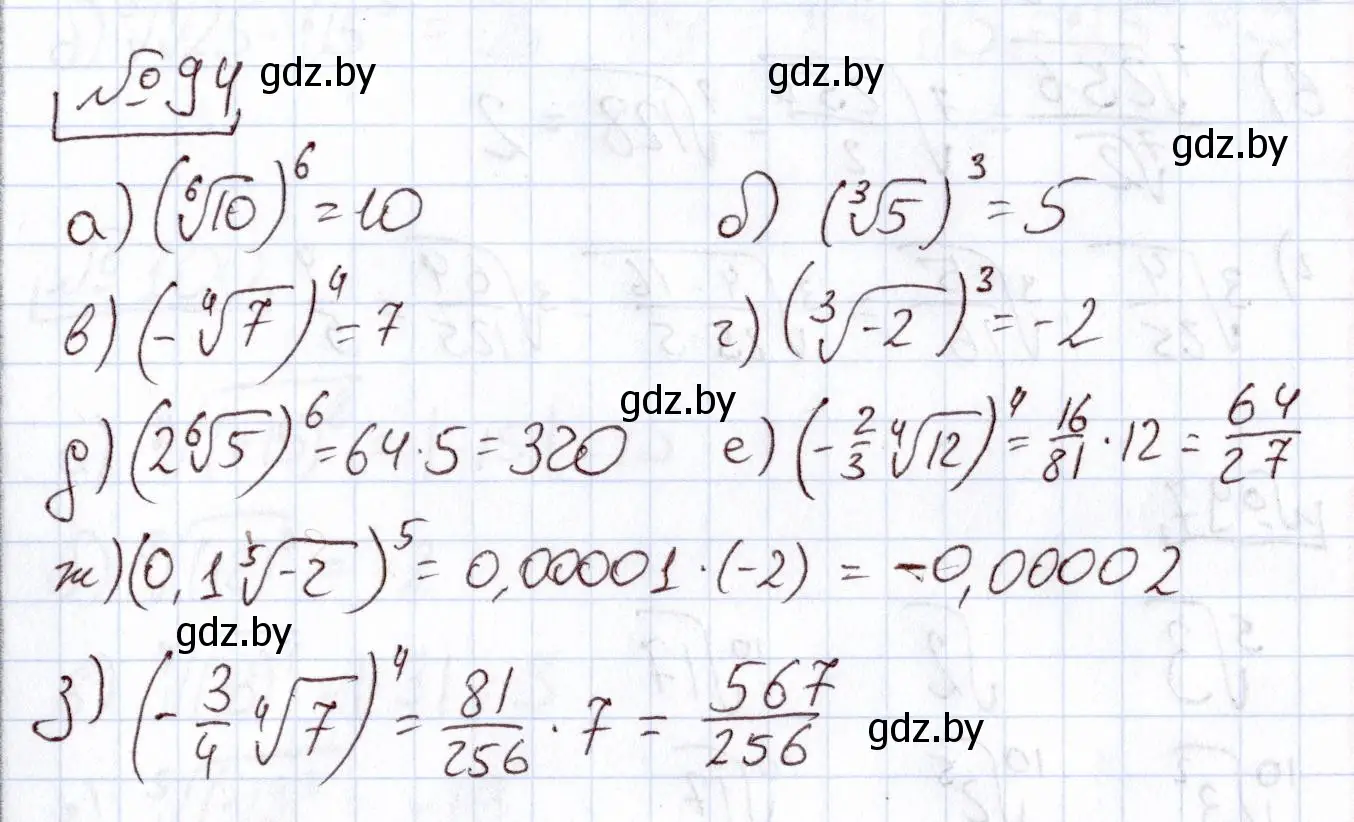 № 94 gdz.by gdz.by
gdz.by
а) (⁶√10)⁶ = 10 б) (³√5)³ = 5
в) (-⁴√7)⁴ = 7 г) (³√-2)³ = -2
gdz.by
д) (2⁶√5)⁶ = 64·5 = 320 е) (-2/3 ⁴√12)⁴ = 16/81 · 12 = 64/27
ж) (0,1 ⁵√-2)⁵ = 0,00001 · (-2) = -0,00002
gdz.by
з) (-3/4 ⁴√7)⁴ = 81/256 · 7 = 567/256
gdz.by